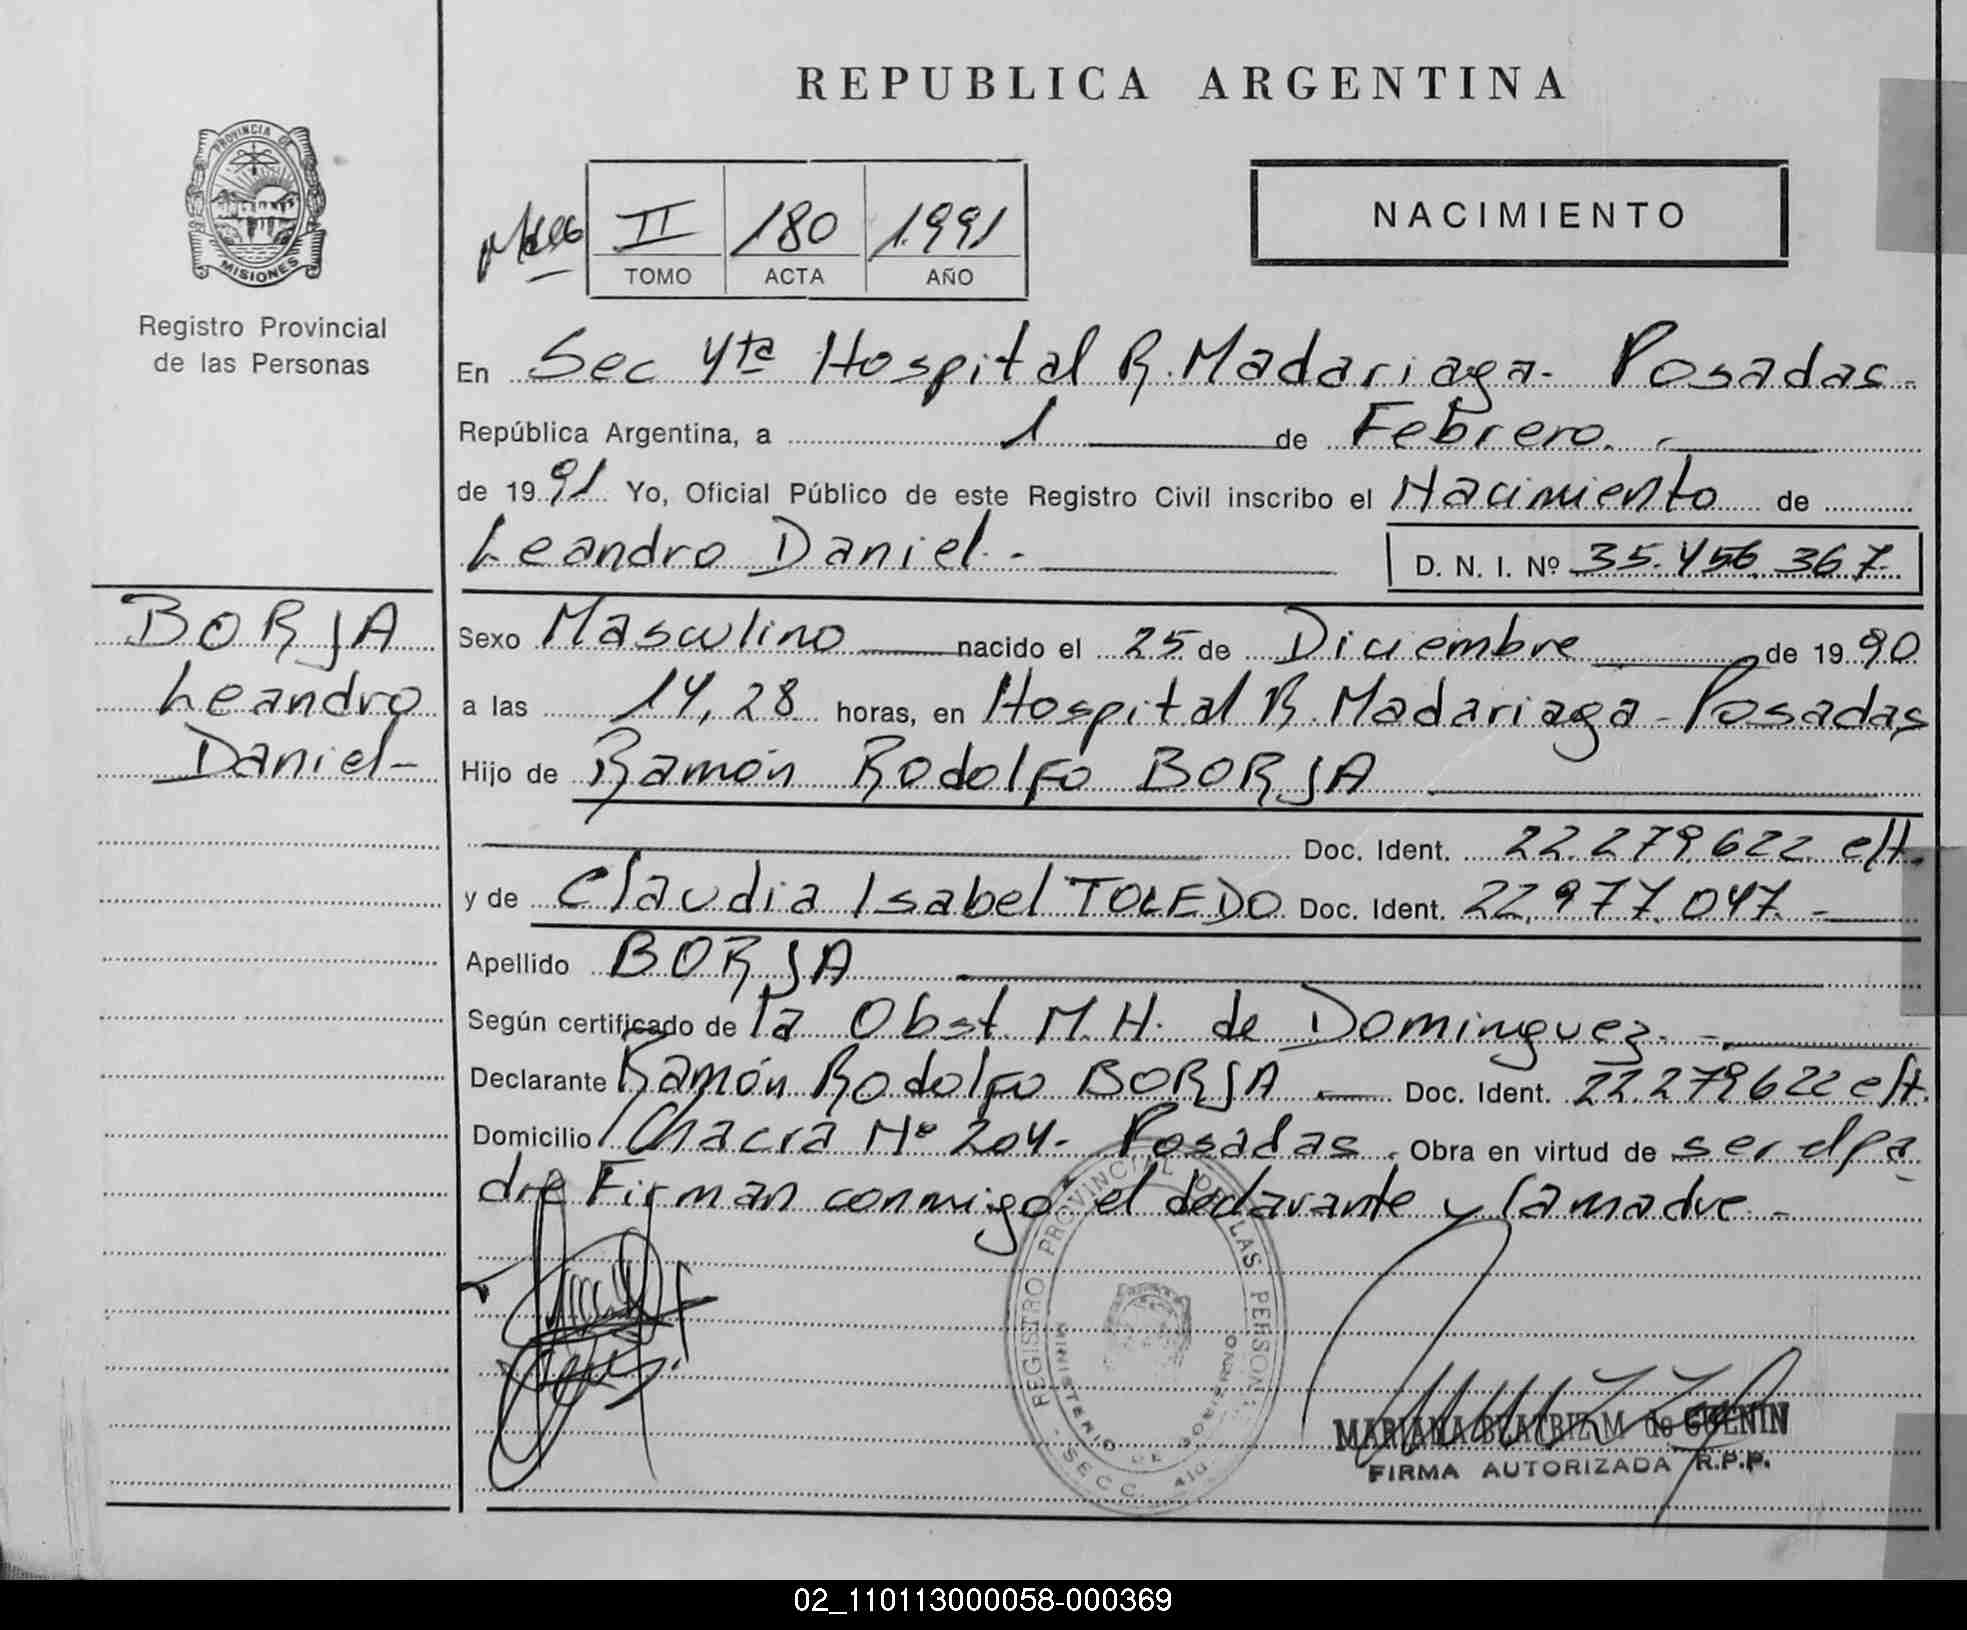 REPUBLICA ARGENTINA
PROVINCIA DE
MISIONES
Registro Provincial
de las Personas
II 180 1991
TOMO ACTA AÑO
NACIMIENTO
En Sec 4ta Hospital R. Madariaga - Posadas -
República Argentina, a 1 de Febrero. -
de 1991 Yo, Oficial Público de este Registro Civil inscribo el Nacimiento de
Leandro Daniel. -
D. N. I. Nº 35.456.367-
BORJA
Leandro
Daniel -
Sexo Masculino nacido el 25 de Diciembre de 1990
a las 14,28 horas, en Hospital R. Madariaga - Posadas
Hijo de Ramón Rodolfo BORJA
Doc. Ident. 22.279.622
y de Claudia Isabel TOLEDO Doc. Ident. 22.977.047. -
Apellido BORJA
Según certificado de la Obst. M. H. de Dominguez. -
Declarante Ramón Rodolfo BORJA Doc. Ident. 22.279622
Domicilio Chacra Nº 204 - Posadas. Obra en virtud de ser el pa
dre Firman conmigo el declarante y la madre -
REGISTRO PROVINCIAL DE LAS PERSONAS
MINISTERIO DE GOBIERNO
SECC. 4ta
MARIANA BEATRIZ M de GUENIN
FIRMA AUTORIZADA R.P.P.
02_110113000058-000369